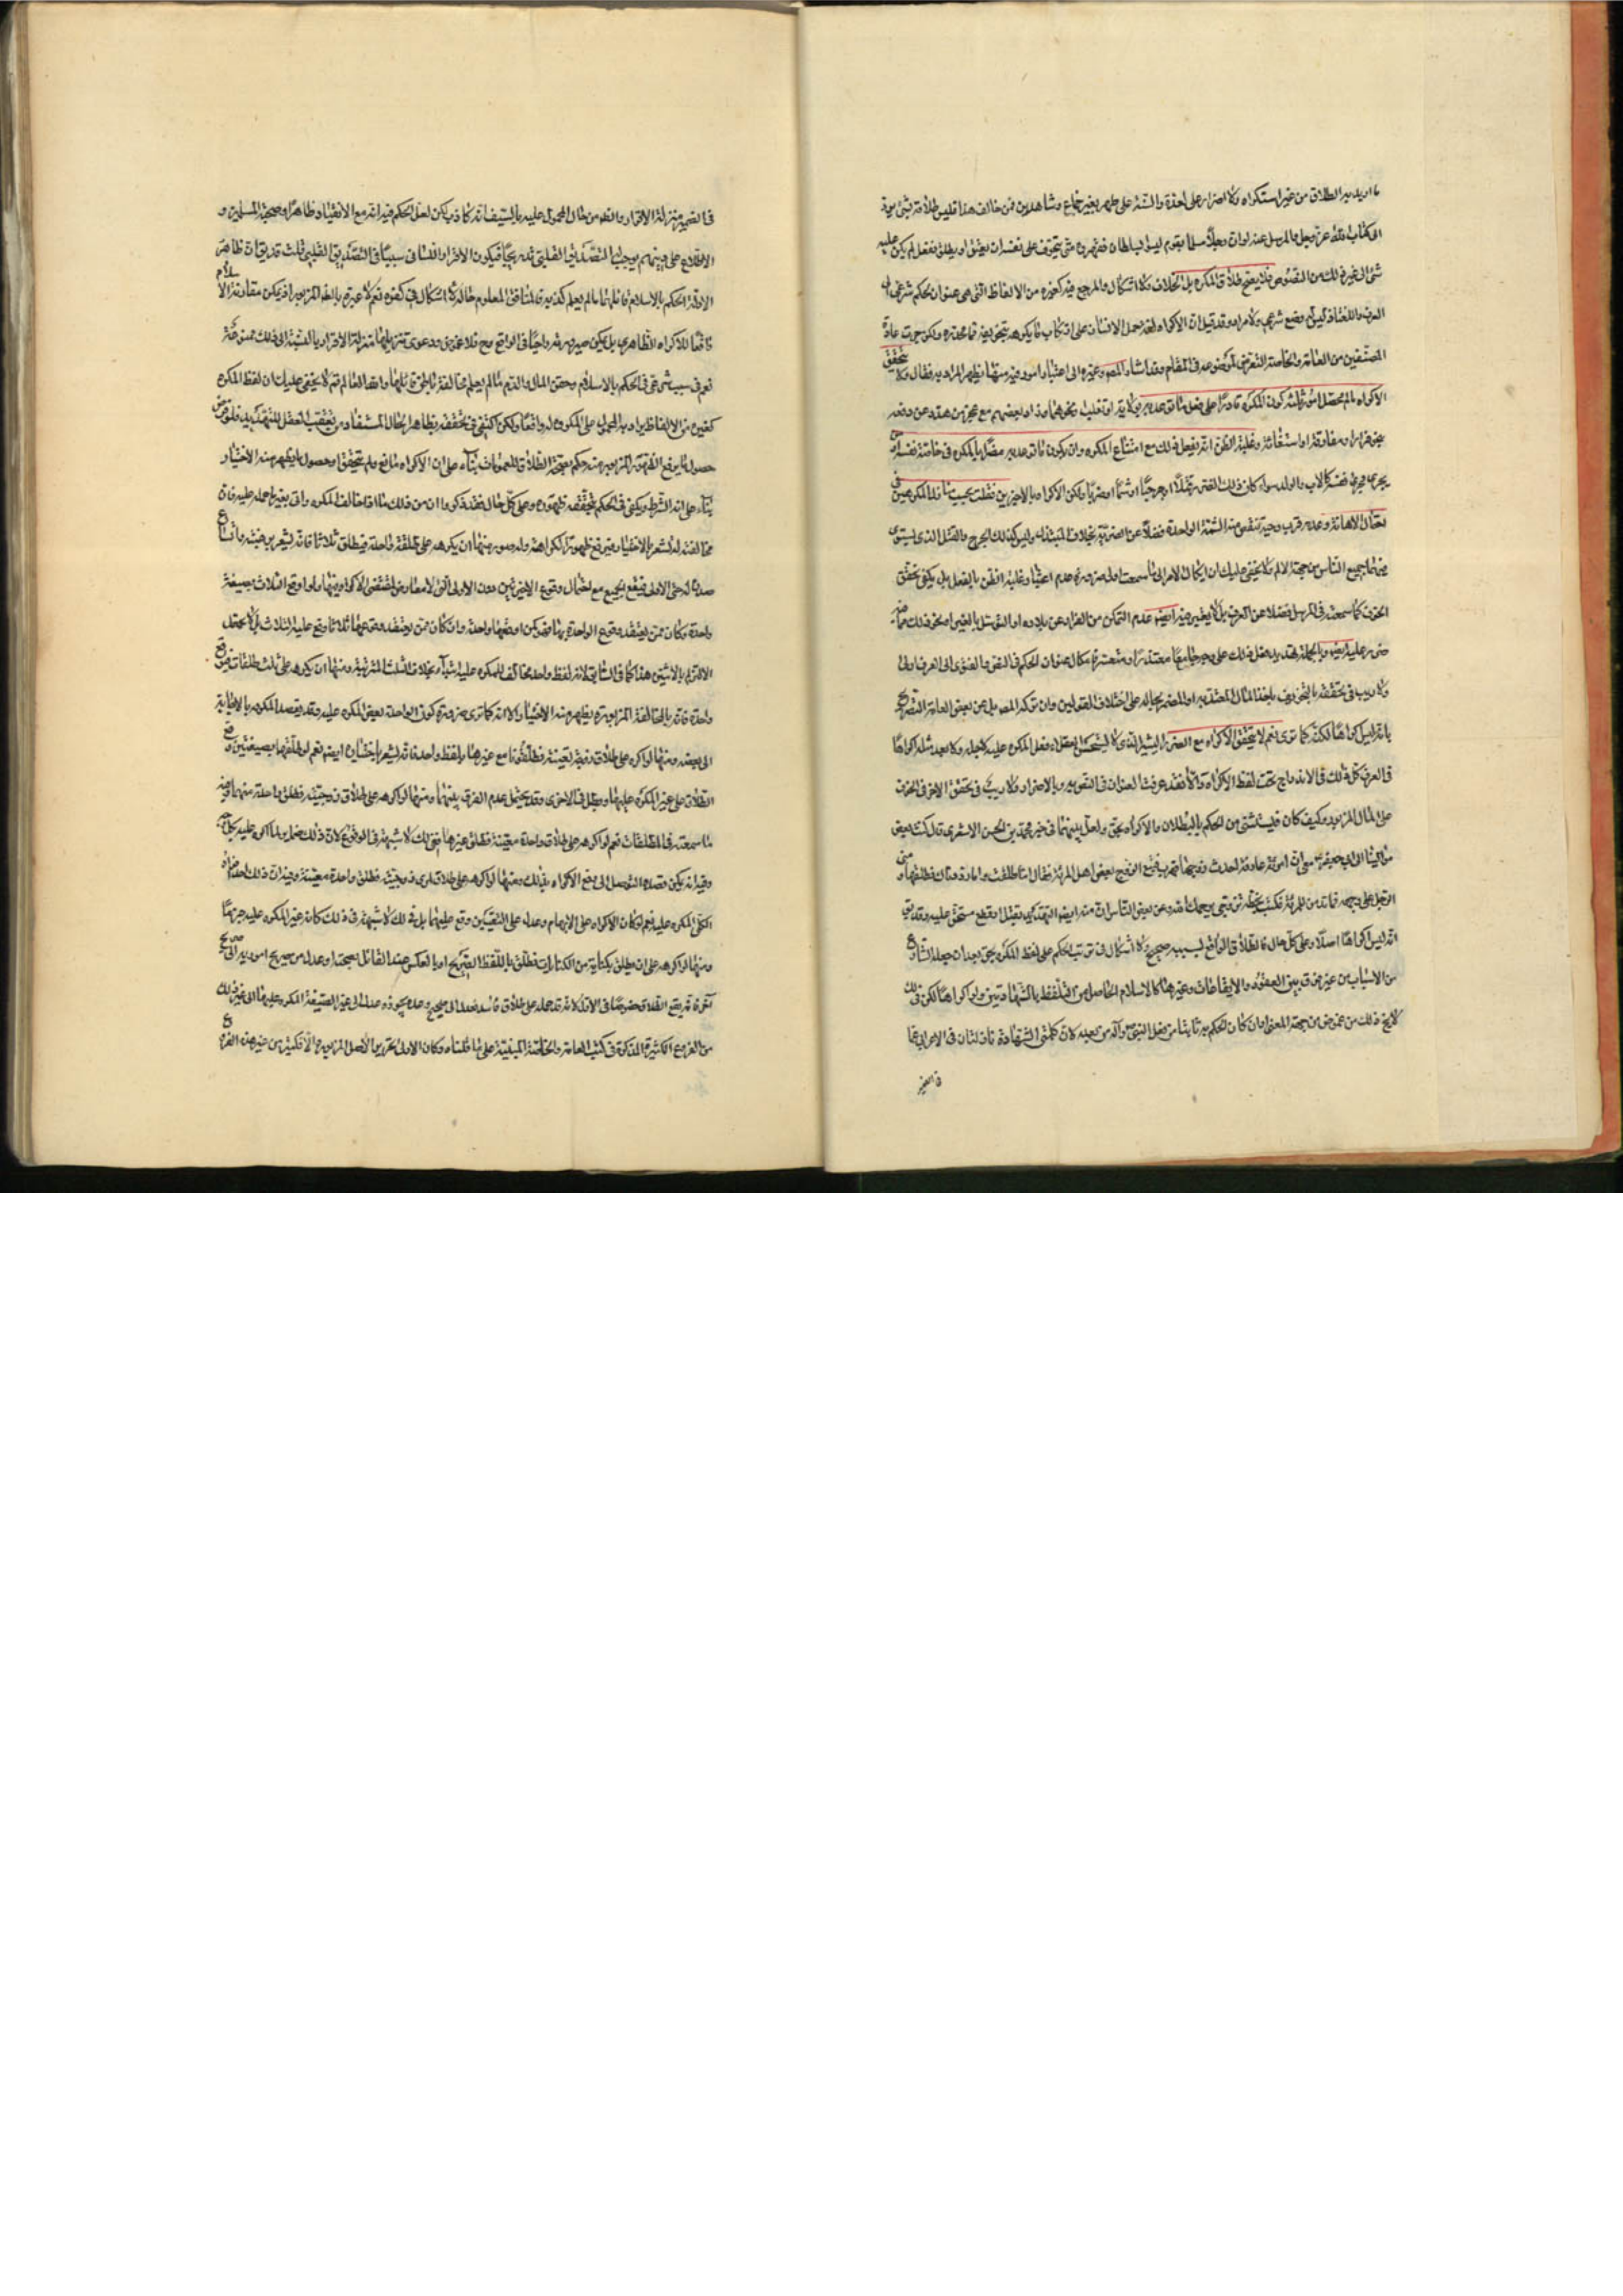 ما اريد به الطلاق من غير استكراه ولا اضرار على العدة والسنة على طهر بغير جماع وشاهدين فمن خالف هذا فليس طلاقه بشئ يرد
الى كتاب الله عز وجل والمرسل عنه لو ان رجلا مسلما بقوم ليسوا بسلطان فقهروه حتى يتخوف على نفسه ان يعتق او يطلق ففعل لم يكن عليه
شئ الى غير ذلك من النصوص فلا يصح طلاق المكره بلا خلاف ولا اشكال والمرجع فيه كغيره من الالفاظ التى هى عنوان لحكم شرعى الى
العرف واللغة اذ ليس له وضع شرعى ولا مراد وقد قيل ان الاكراه لغة حمل الانسان على ارتكاب ما يكرهه بتخويفه مما يحذره ولكن جرت عادة
المصنفين من العامة والخاصة التعرض لموضوعه فى المقام وقد اشار المصنف وغيره الى اعتبار امور فيه منها يظهر المراد به فقال ولا يتحقق
الاكراه ما لم يحصل امور ثلثة كون المكره قادرا على فعل ما توعد به بولاية او تغلب ونحوهما وزاد بعضهم مع عجز من هدده عن دفعه
بفرار او مقاومة او استغاثة وغلبة الظن انه يفعل ذلك مع امتناع المكره وان يكون ما توعد به مضرا بالمكره فى خاصة نفسه او من
يجرى مجرى نفسه كالاب والولد سواء كان ذلك الضرر قتلا او جرحا او شتما او ضربا ولكن الاكراه بالاخيرين يختلف بحسب المكرهين فى
احتمال الاهانة وعدمه فرب وجيه تنقص منه الشتمة الواحدة فضلا عن الضربة بخلاف المبتذل وليس كذلك الجرح والقتل الذى يستوى
فيهما جميع الناس من جهة الالم ولا يخفى عليك ان ايكال الامر الى ما سمعت اولى ضرورة عدم اعتبار غلبة الظن بالفعل بل يكفى تحقق
الخوف كما سمعته فى المرسل فضلا عن العرف بل لا يعتبر فيه ايضا عدم التمكن من الفرار عن بلاده او التوسل بالغير او نحو ذلك مما
ضرر عليه ايضا وبالجملة
ولا ريب فى تحققه بالتخويف باخذ المال المضر بحاله على اختلاف القولين وان تركه المص بل عن بعض العامة التصريح
بانه ليس اكراها لكنه كما ترى نعم لا يتحقق الاكراه مع الضرر اليسير الذى لا يستحسن العقلاء فعل المكره عليه لاجله ولا يعد مثله اكراها
فى العرف كل ذلك فى الاندراج تحت لفظ الاكراه والا فقد عرفت العنوان فى النصوص وبالاضرار ولا ريب فى تحقق الاخر فى الخوف
على المال المزبور وكيف كان فليستثنى من الحكم بالبطلان والاكراه بحق ولعل منه ما فى خبر محمد بن الحسن الاشعرى قال كتب بعض
موالينا الى ابى جعفر ع معى ان امرأة عارفة احدث زوجها فهرب فتبع الزوج بعض اهل المرأة فقال اما طلقت واما رددتك فطلقها ومضى
الرجل على وجهه فما ترى للمرأة فكتب بخطه تزوجى يرحمك الله وعن بعض الناس ان منه ايضا التهديد بقتل او قطع مستحق عليه وقد يق
انه ليس اكراها اصلا وعلى كل حال فالطلاق الواقع بسببه صحيح ولا اشكال فى ترتب الحكم على لفظ المكره بحق بعد ان جعله الشارع
من الاسباب من غير فرق بين العقود والايقاعات وغيرهما كالاسلام الحاصل من التلفظ بالشهادتين ولو اكراها لكن فى ذلك
لا يخ ذلك من غموض من جهة المعنى وان كان الحكم به ثابتا من فعل النبى ص وآله من بعده لان كلمتى الشهادة نازلتان فى الاعراب عما
فى الضمير
فى الضمير منزلة الاقرار والظاهر من حال المحمول عليه بالسيف انه كاذب لكن لعل الحكم فيه انه مع الانقياد ظاهرا وصحبة المسلمين و
الاطلاع على دينهم يوجب التصديق القلبى تدريجا فيكون الاقرار اللسانى سببا فى التصديق القلبى قلت قد يق ان ظاهر
الادلة الحكم بالاسلام قائلهما ما لم يعلم كذبه والمنافق المعلوم حاله لا اشكال فى كفره نعم لا عبرة بالظهور المزبور اذ يمكن مقارنة الاسلام
واقعا للاكراه الظاهرى بل يمكن صيرورته داعيا فى الواقع مع فلا غموض ودعوى تنزيلهما منزلة الاقرار بالنسبة الى ذلك ممنوعة
نعم هى سبب شرعى فى الحكم بالاسلام وحقن المال والدم ما لم يعلم مخالفة باطن قائلهما والله العالم ثم لا يخفى عليك ان لفظ المكره
كغيره من الالفاظ يراد به المحمول على المكروه له واقعا ولكن يكتفى فى تحققه بظاهر الحال المستفاد من تعقيب الفعل للتهديد فلو فرض
حصول ما يرفع الظهور المزبور منه حكم بصحة الطلاق للعمومات بناء على ان الاكراه مانع ولم يتحقق او حصول ما يظهر منه الاختيار
بناء على انه الشرط ويكفى فى الحكم بتحققه ظهوره وعلى كل حال فقد ذكروا ان من ذلك ما اذا خالف المكره واتى بغير ما حمله عليه فان
مخالفته له تشعر بالاختيار فيرتفع ظهور الكراهة وله صور منها ان يكرهه على طلقة واحدة فيطلق ثلاثا فانه يشعر برغبته واتساع
صدره له حتى الاولى فيقع الجميع مع احتمال وقوع الاخيرتين دون الاولى التى لا معارض لمقتضى الاكراه فيها ولو اوقع الثلاث بصيغة
واحدة وكان ممن يعتقد وقوع الواحدة بها فكمن اوقعها واحدة وان كان ممن يعتقد وقوعها ثلاثا وقع عليه الثلاث بل لا يحتمل
الالتزام بالاثنين هنا كما فى السابق لانه لفظ واحد مخالف للمكره عليه ابتداء بخلاف الثلث المترتبة ومنها ان يكرهه على ثلث طلقات فيوقع
واحدة فانه بالمخالفة المزبورة يظهر منه الاختيار الا انه كما ترى ضرورة كون الواحدة بعض المكره عليه وقد يقصد المكره بالاجابة
الى بعضه ومنها لو اكره على طلاق زوجة بعينها فطلقها مع غيرها بلفظ واحد فانه يشعر باختياره ايضا نعم لو طلقها بصيغتين وقع
الطلاق على غير المكره عليها وبطل فى الاخرى وقد يحتمل عدم الفرق بينهما ومنها لو اكرهه على طلاق زوجتيه فطلق واحدة منهما وفيه
ما سمعته فى الطلقات نعم لو اكرهه على طلاق واحدة معينة فطلق غيرها مع ذلك لا شبهة فى الوقوع لان ذلك
وفيه انه يمكن قصده التوصل الى دفع الاكراه بذلك ومنها لو اكرهه على طلاق احدى زوجتيه فطلق واحدة معينة وفيه ان ذلك احد افراد
الكلى المكره عليه نعم لو كان الاكراه على الابهام وعدل على التعيين وقع عليهما بل فى ذلك لا شبهة فى ذلك كانه غير المكره عليه جزما
ومنها لو اكرهه على ان يطلق بكناية من الكنايات فطلق باللفظ الصريح او بالعكس عند القائل بصحته او عدل من صريح امر به الى صريح
آخر فانه يقع الطلاق خصوصا فى الاول لانه قد حمله على طلاق فاسد فعدل الى صحيح
من الفروع الكثيرة المذكورة فى كتب العامة والخاصة المبنية على ما قلناه وكان الاولى تحرير الاصل المزبور والا فكثير من هذه الفروع